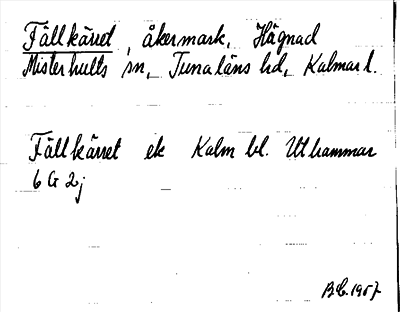 Fällkärret, åkermark, Hägnad
Misterhults sn, Tunaläns hd, Kalmar l.
Fällkärret ek Kalm bl. Uthammar
6 G 2j
B.E. 1957